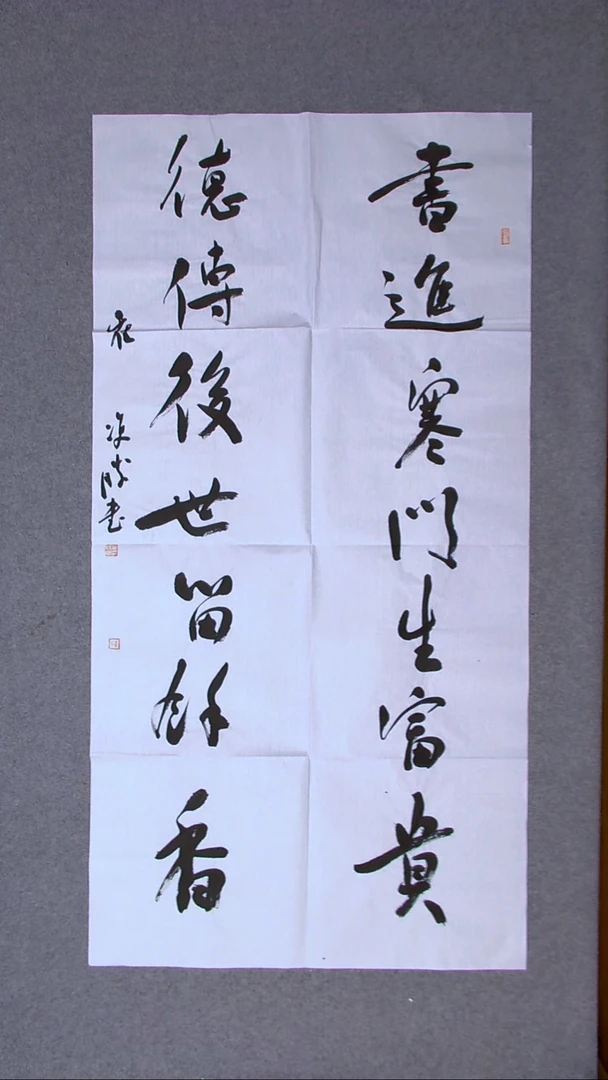 書進寒門生富貴
德傳後世留餘香